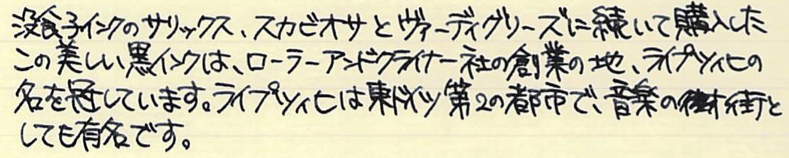 没食子インクのサリックス、スカビオサとヴァーディグリーズに続いて購入した
この美しい黒インクは、ローラーアンドクライナー社の創業の地、ライプツィヒの
名を冠しています。ライプツィヒは東ドイツ第2の都市で、音楽の街と
しても有名です。